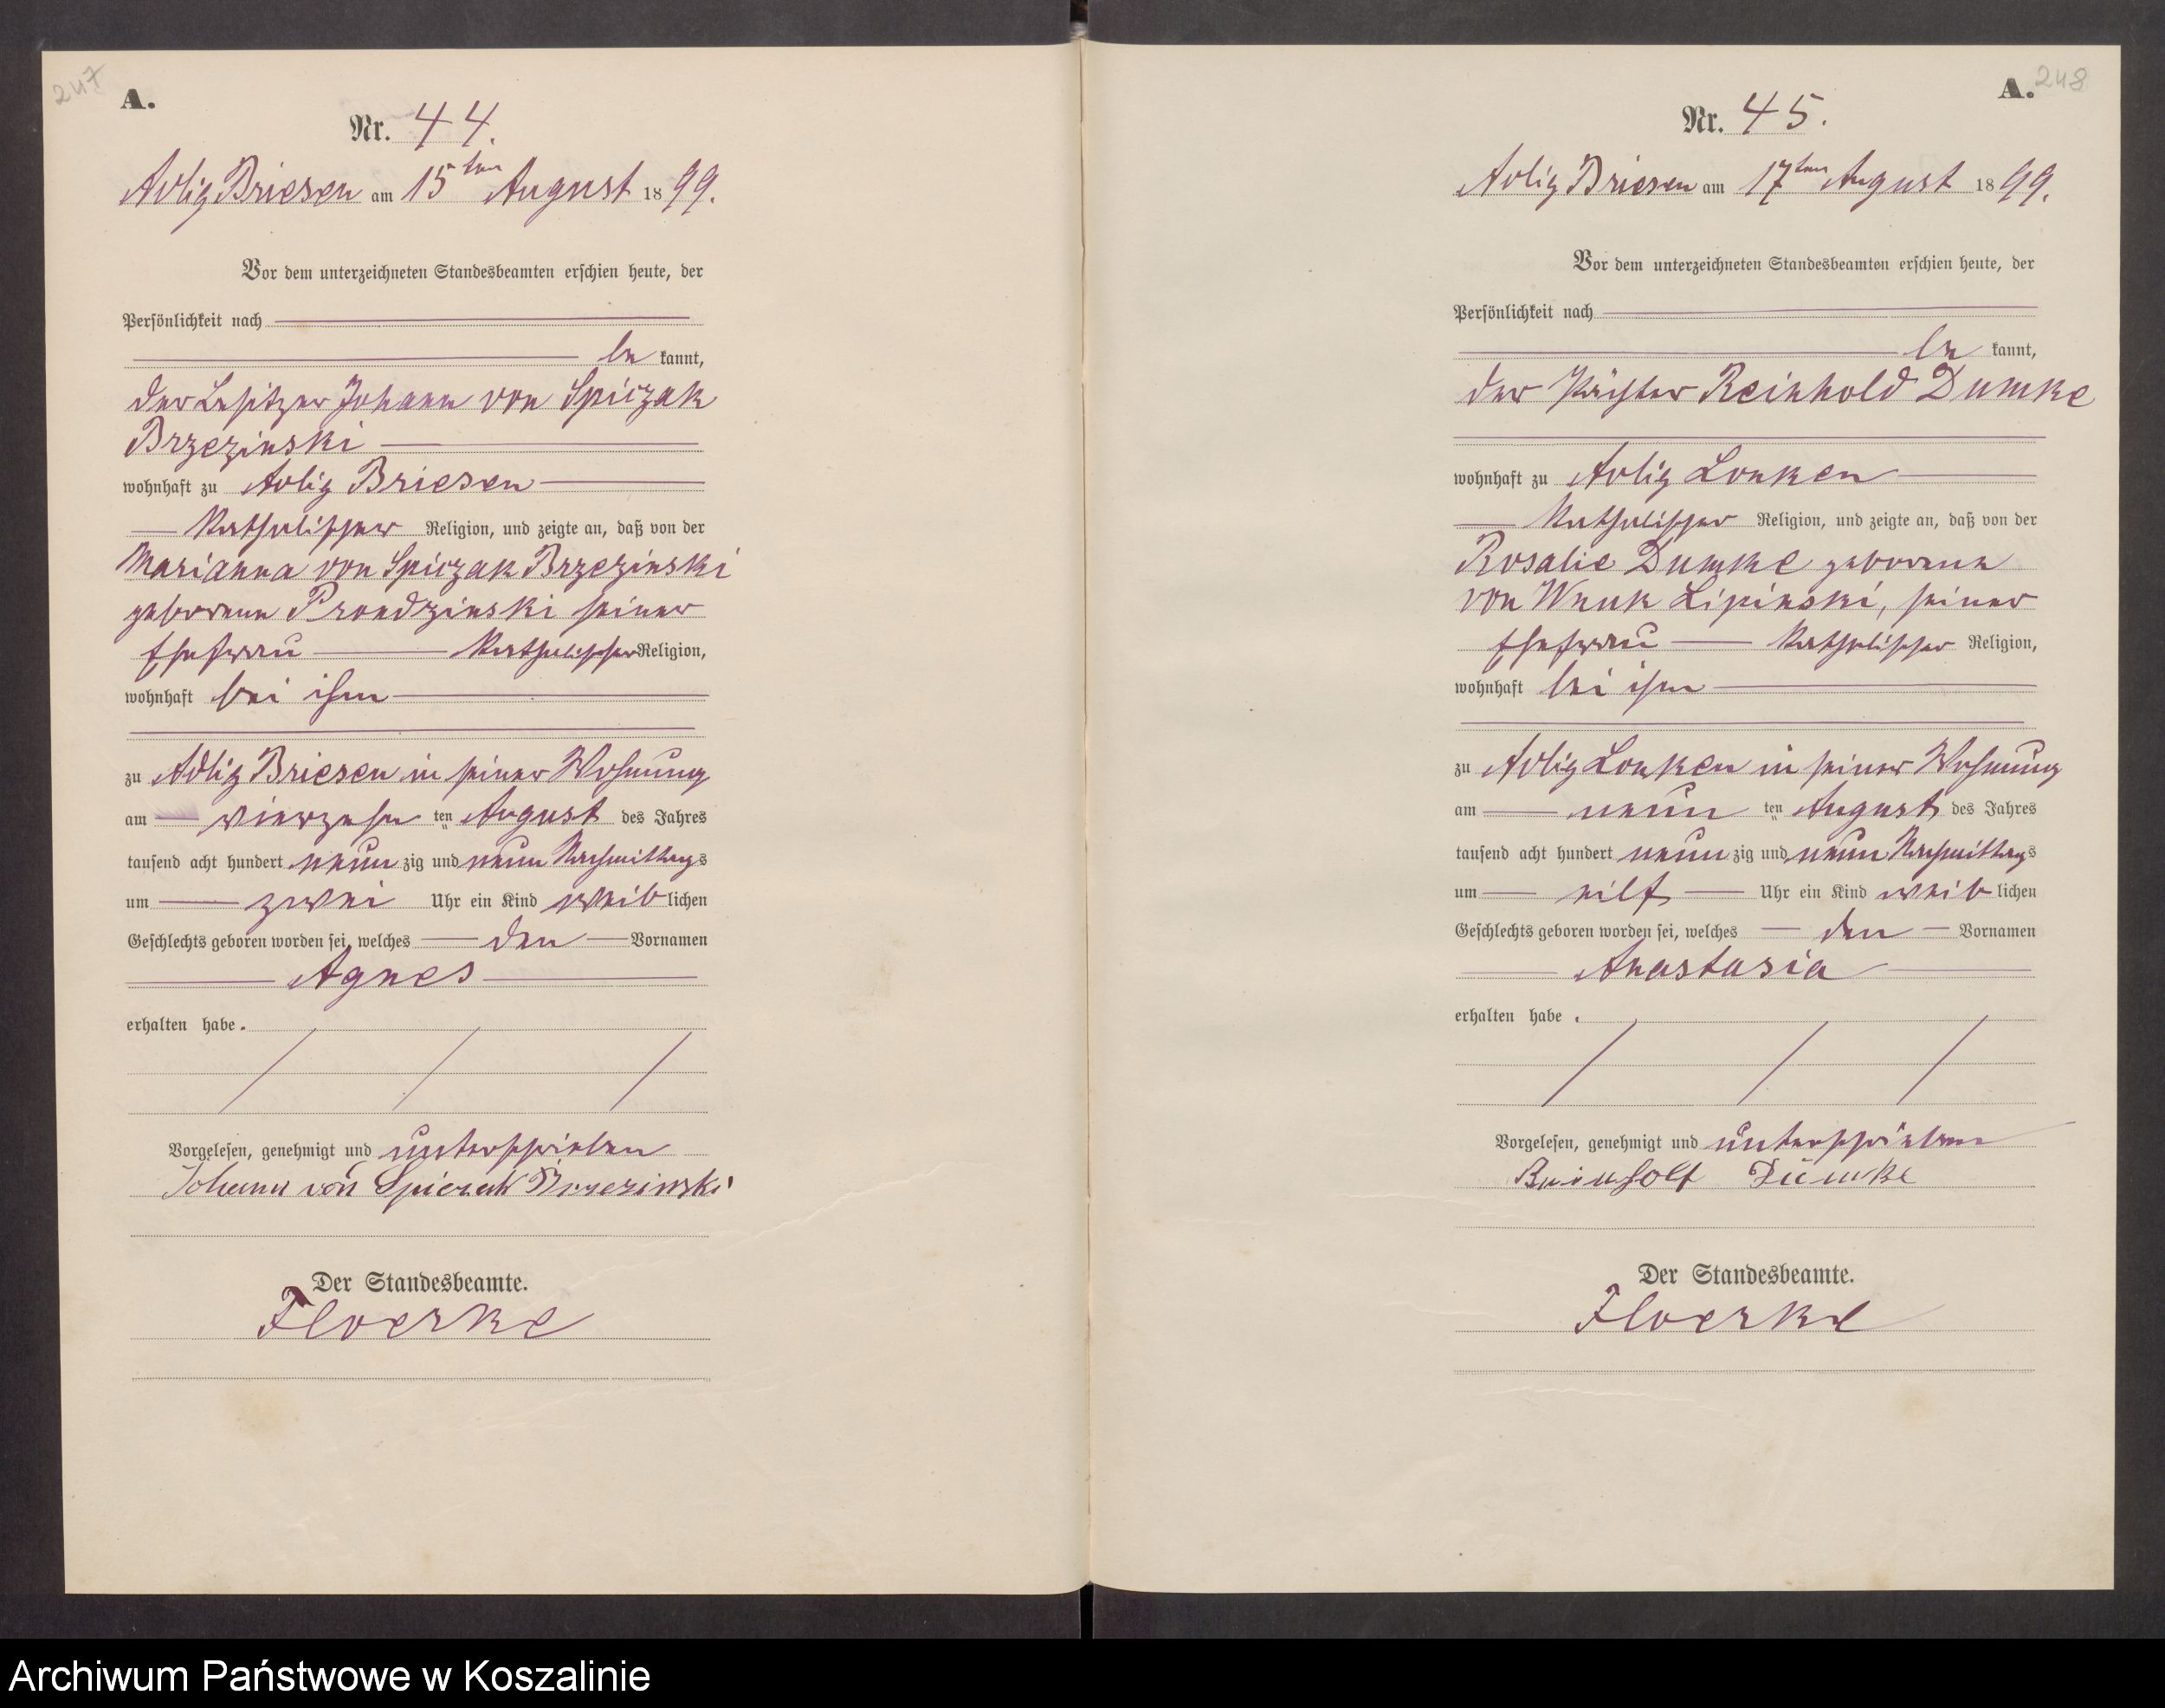 247
A.
Nr. 44.
Adlig Briesen am 15ten August 1899.
Vor dem unterzeichneten Standesbeamten erschien heute, der
Persönlichkeit nach
be kannt,
der Besitzer Johann von Spiczak
Brzezinski
wohnhaft zu Adlig Briesen
katholischer Religion, und zeigte an, daß von der
Marianna von Spiczak Brzezinski
geborenen Prondzinski seiner
Ehefrau katholischer Religion,
wohnhaft bei ihm
zu Adlig Briesen in seiner Wohnung
am vierzehn ten August des Jahres
tausend acht hundert neun zig und neun Nachmittags
um zwei Uhr ein Kind weib lichen
Geschlechts geboren worden sei, welches den Vornamen
Agnes
erhalten habe.
Vorgelesen, genehmigt und unterschrieben
Johann von Spiczak Brzezinski
Der Standesbeamte.
Floerke
248
A.
Nr. 45.
Adlig Briesen am 17ten August 1899.
Vor dem unterzeichneten Standesbeamten erschien heute, der
Persönlichkeit nach
be kannt,
der Pächter Reinhold Dumke
wohnhaft zu Adlig Lonken
katholischer Religion, und zeigte an, daß von der
Rosalie Dumke geborenen
von Wnuk Lipinski, seiner
Ehefrau katholischer Religion,
wohnhaft bei ihm
zu Adlig Lonken in seiner Wohnung
am neun ten August des Jahres
tausend acht hundert neun zig und neun Nachmittags
um eilf Uhr ein Kind weib lichen
Geschlechts geboren worden sei, welches den Vornamen
Anastasia
erhalten habe.
Vorgelesen, genehmigt und unterschrieben
Reinholt Dumke
Der Standesbeamte.
Floerke
Archiwum Państwowe w Koszalinie